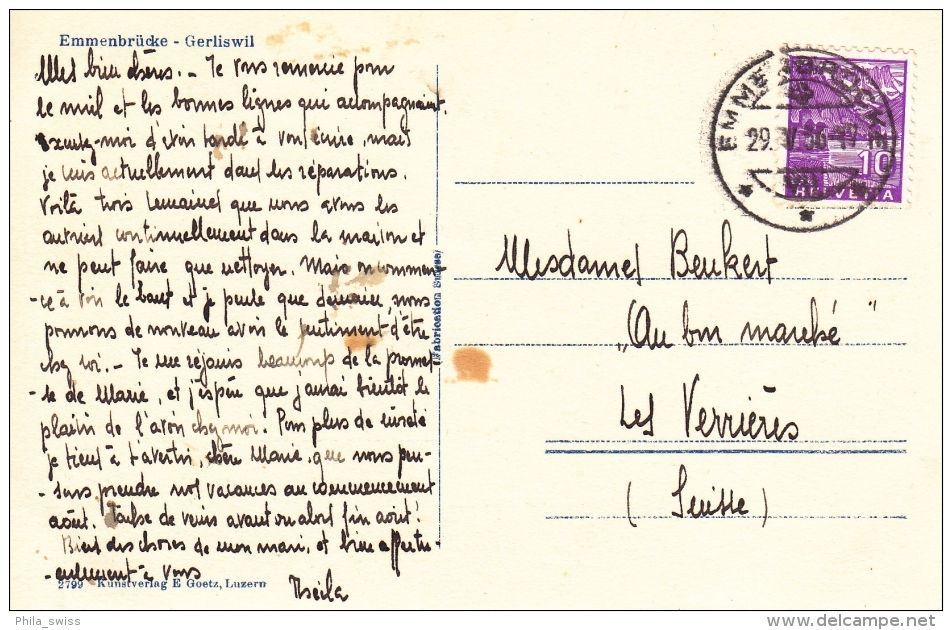 Emmenbrücke - Gerliswil
Mes bien chères. - Je vous remercie pour
le miel et les bonnes lignes qui accompagnaient.
Excusez-moi d'avoir tardé à vous écrire, mais
je suis actuellement dans les réparations.
Voilà trois semaines que nous avons les
ouvriers continuellement dans la maison et
ne peut faire que nettoyer. Mais on commen-
-ce à voir le bout et je pense que demain nous
pourrons de nouveau avoir le sentiment d'être
chez soi. - Je me réjouis beaucoup de la promes-
-se de Marie, et j'espère que j'aurai bientôt le
plaisir de l'avoir chez moi. Pour plus de sûreté
je tiens à t'avertir, chère Marie, que nous pen-
-sons prendre nos vacances au commencement
août. Tâche de venir avant ou alors fin août!
Bien des choses de mon mari, et bien affectu-
-eusement à vous
2799 Kunstverlag E Goetz, Luzern
Fabrication Suisse
EMMENBRÜCKE
10
HELVETIA
Mesdames Beukert
"Au bon marché"
Les Verrières
(Suisse)
Phila_swiss
delcampe.net